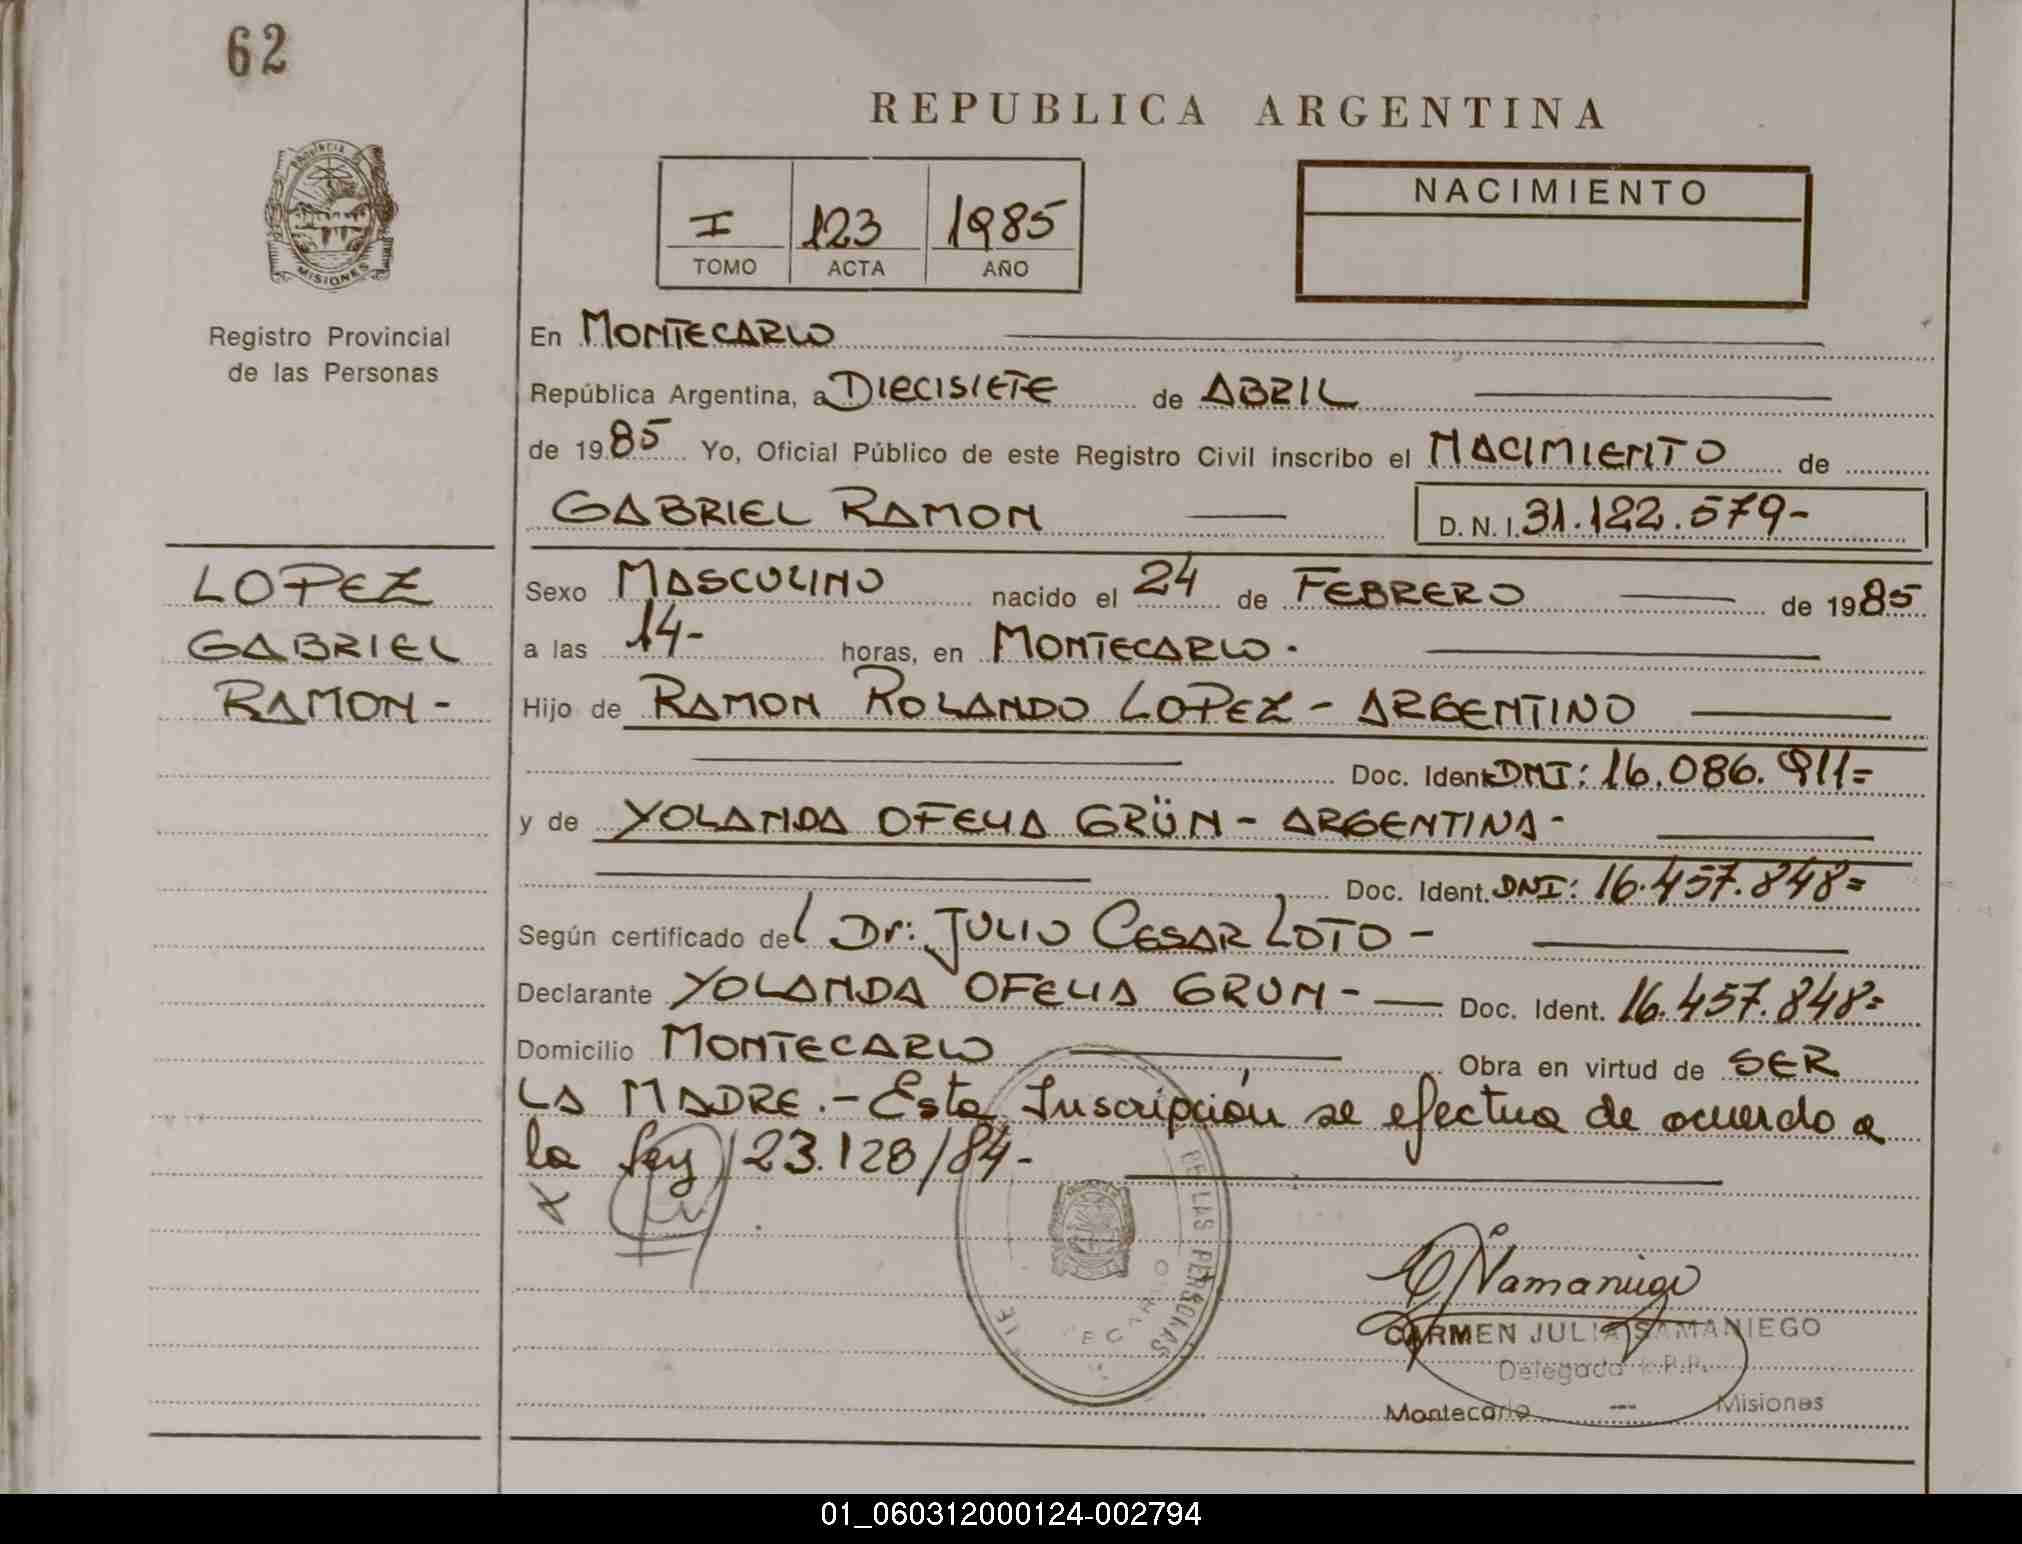 62
REPUBLICA ARGENTINA
PROVINCIA DE
MISIONES
I 123 1985
TOMO ACTA AÑO
NACIMIENTO
Registro Provincial
de las Personas
En MONTECARLO
República Argentina, a DIECISIETE de ABRIL
de 1985 Yo, Oficial Público de este Registro Civil inscribo el NACIMIENTO de
GABRIEL RAMON D. N. I. 31.122.579-
LOPEZ
GABRIEL
RAMON-
Sexo MASCULINO nacido el 24 de FEBRERO de 1985
a las 14- horas, en MONTECARLO.
Hijo de RAMON ROLANDO LOPEZ - ARGENTINO
Doc. Ident. DNI: 16.086.911=
y de YOLANDA OFELIA GRÜN - ARGENTINA-
Doc. Ident. DNI: 16.457.848=
Según certificado del Dr: JULIO CESAR LOTO -
Declarante YOLANDA OFELIA GRUN - Doc. Ident. 16.457.848=
Domicilio MONTECARLO Obra en virtud de SER
LA MADRE.- Esta Inscripción se efectua de acuerdo a
la Ley 23.128/84-
DE LAS PERSONAS
CARMEN JULIA SAMANIEGO
Delegada R.P.P.
Montecarlo --- Misiones
01_060312000124-002794